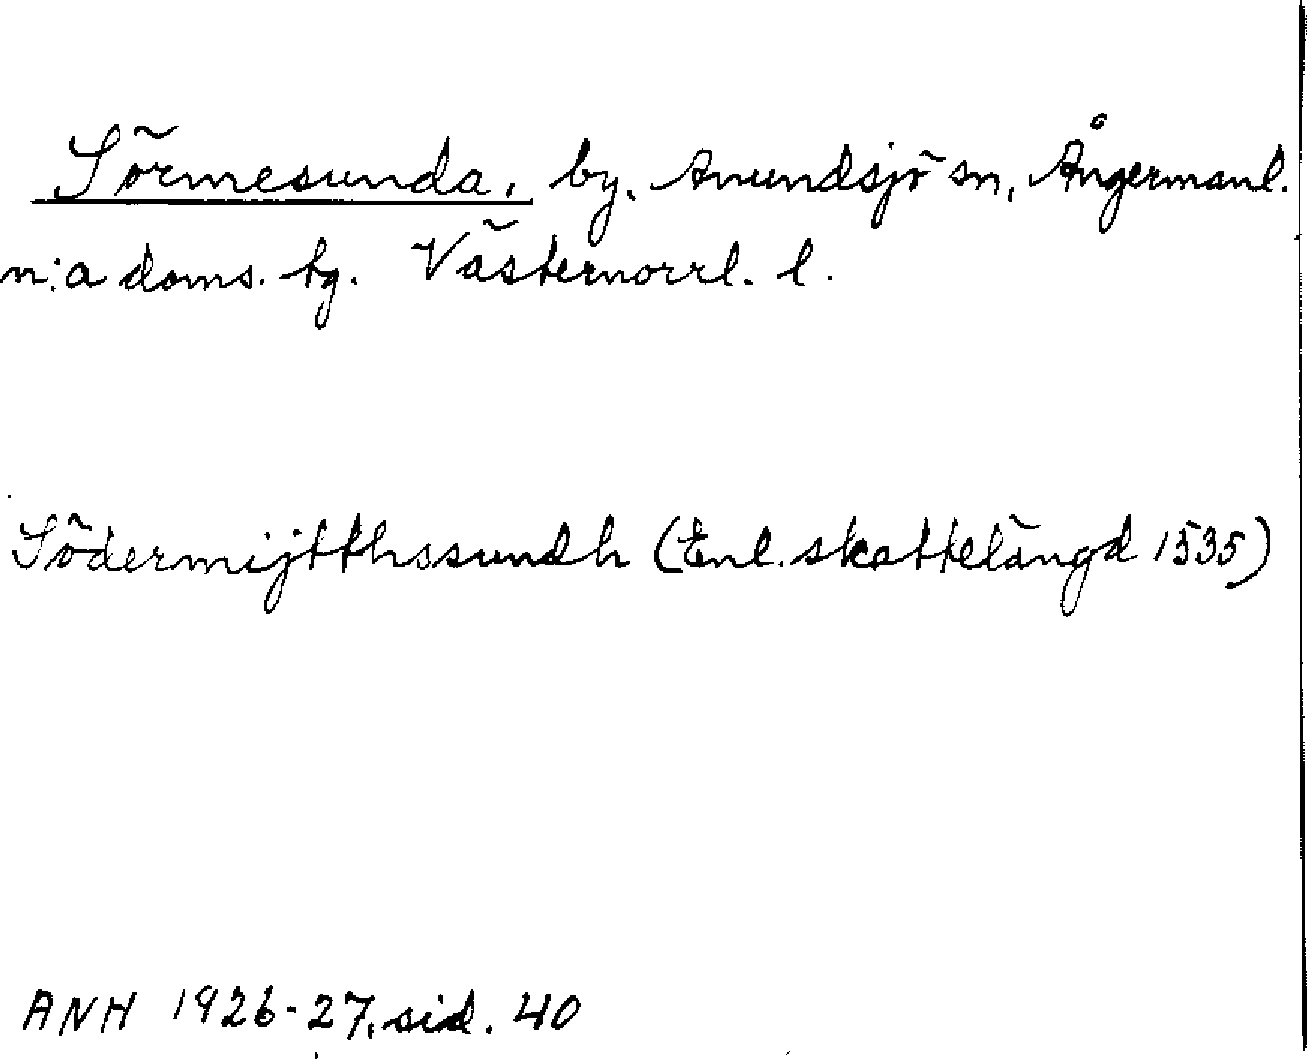 Sörmesunda, by, Anundsjö sn, Ångermanl.
n:a doms. tg. Västernorrl. l.
Södermijtthssundh (Enl. skattelängd 1535)
ANH 1926-27, sid. 40